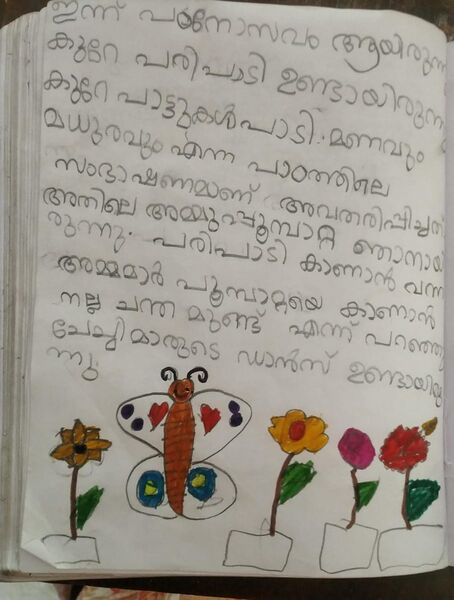 ഇന്ന് പഠനോസവം ആയിരുന്നു
കുറേ പരിപാടി ഉണ്ടായിരുന്നു
കുറേ പാട്ടുകൾ പാടി. മണവും
മധുരവും എന്ന പാഠത്തിലെ
സംഭാഷണമാണ് അവതരിപ്പിച്ചത്
അതിലെ അമ്മുപ്പൂമ്പാറ്റ ഞാനായി
രുന്നു. പരിപാടി കാണാൻ വന്ന
അമ്മമാർ പൂമ്പാറ്റയെ കാണാൻ
നല്ല ചന്തമുണ്ട് എന്ന് പറഞ്ഞു
ചേച്ചിമാരുടെ ഡാൻസ് ഉണ്ടായിരു
ന്നു.